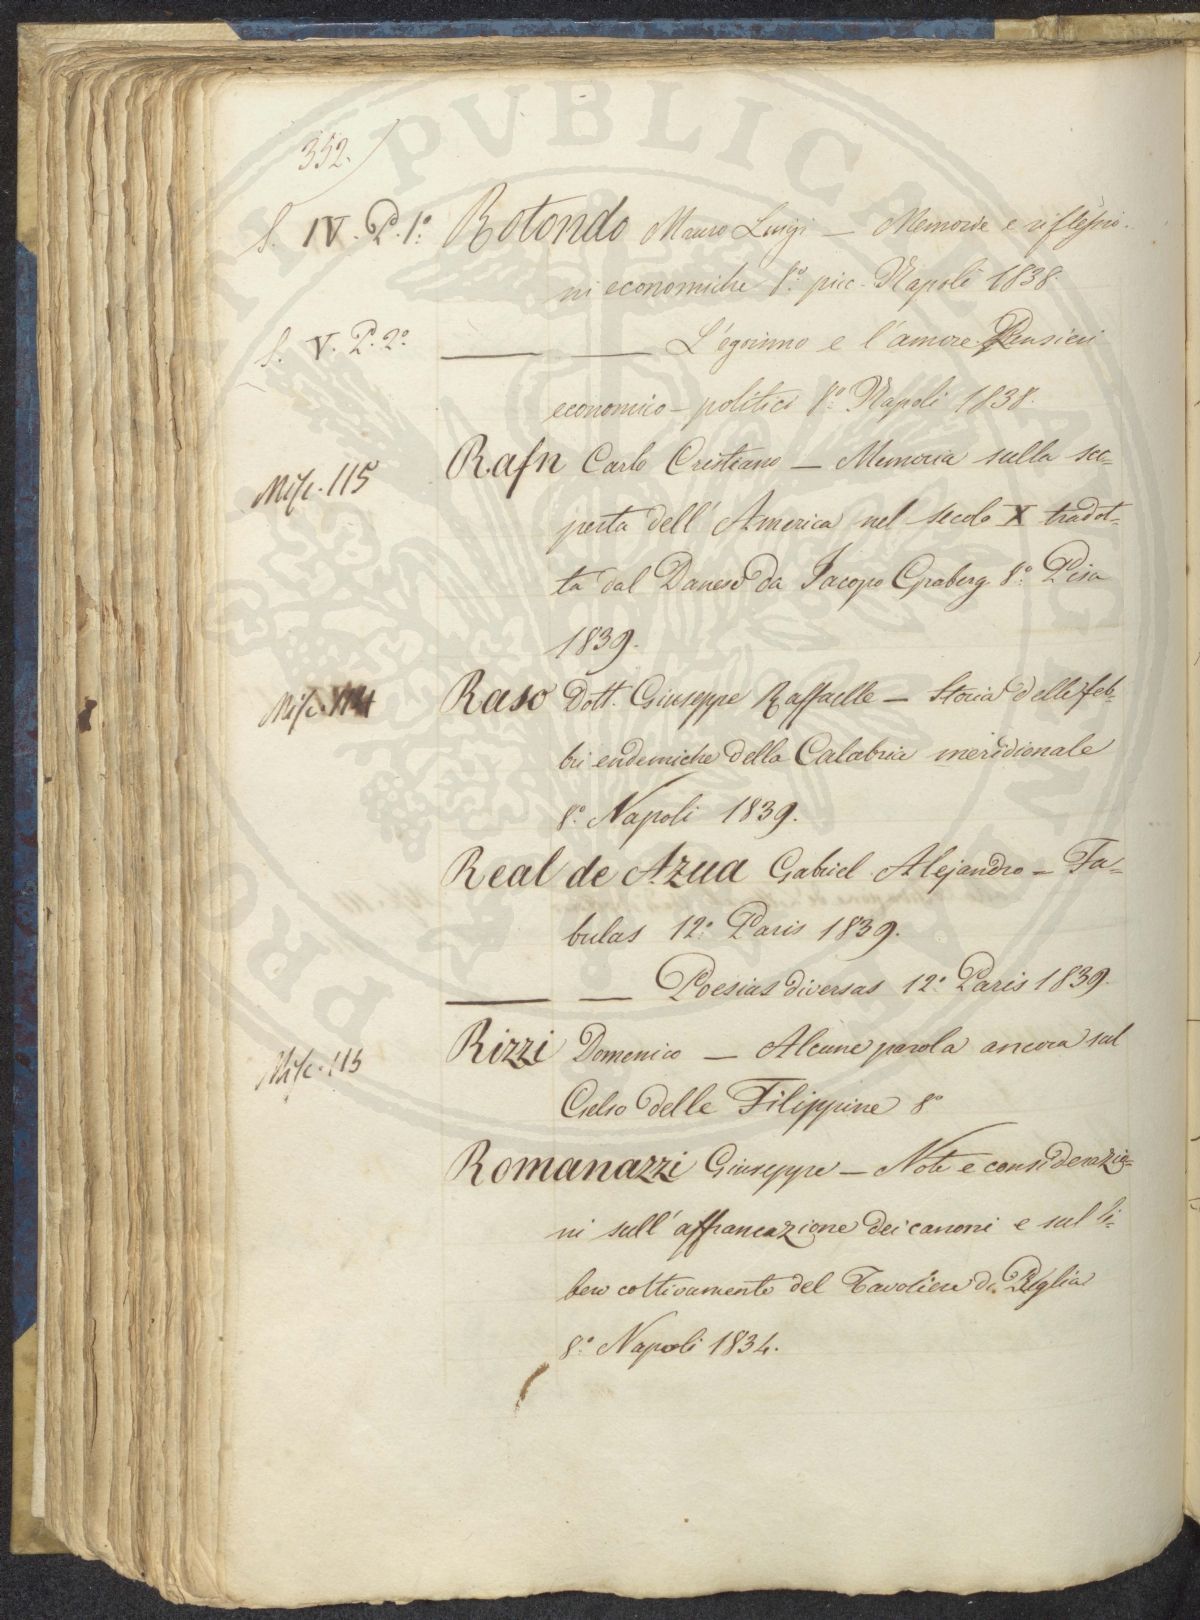 352.
S. IV. P. 1.º Rotondo Mauro Luigi — Memorie e riflessio-
ni economiche 8.º picc. Napoli 1838.
S. V. P. 2.º — — L'egoismo e l'amore. Pensieri
economico-politici 8.º Napoli 1838.
Misc. 115 Rafn Carlo Cristiano — Memoria sulla sco-
perta dell'America nel secolo X tradot-
ta dal Danese da Jacopo Graberg 8.º Pisa
1839.
Misc. 114 Raso Dott. Giuseppe Raffaelle — Storia delle feb-
bri endemiche della Calabria meridionale
8.º Napoli 1839.
Real de Azua Gabriel Alejandro — Fa-
bulas 12.º Paris 1839.
— — Poesias diversas 12.º Paris 1839.
Misc. 115 Rizzi Domenico — Alcune parola ancora sul
Gelso delle Filippine 8.º
Romanazzi Giuseppe — Note e considerazio-
ni sull'affrancazione dei canoni e sul li-
bero coltivamento del Tavoliere di Puglia
8.º Napoli 1834.